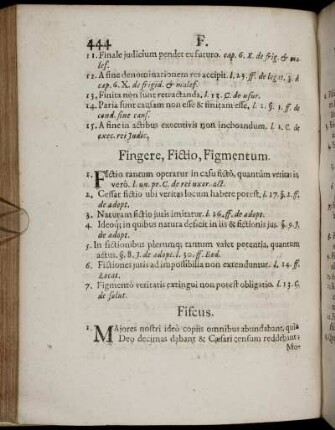 444 F.
11. Finale judicium pendet ex futuro. cap. 6. X. de frig. & malef.
12. A fine denominationem res accipit. l. 23. ff. de legat. 3. &
cap. 6. X. de frigid. & malef.
13. Finita non sunt retractanda, l. 13. C. de usur.
14. Paria sunt causam non esse & finitam esse, l. 1. §. 3. ff. de
cond. sine caus.
15. A fine in actibus executivis non inchoandum. l. 1. C. de
exec. rei judic.
Fingere, Fictio, Figmentum.
1. Fictio tantum operatur in casu ficto, quantùm veritas in
verò. l. un. pr. C. de rei uxor. act.
2. Cessat fictio ubi veritas locum habere potest, l. 17. §. 2. ff.
de adopt.
3. Naturam fictio juris imitatur. l. 16. ff. de adopt.
4. Ideoq; in quibus natura deficit in iis & fictionis jus. §. 9. J.
de adopt.
5. In fictionibus plerumq; tantum valet potentia, quantum
actus. §. 8. J. de adopt. l. 30. ff. Eod.
6. Fictiones juris ad impossibilia non extenduntur. l. 14. ff.
Locat.
7. Figmentò veritatis extingui non potest obligatio. l. 13. C.
de solut.
Fiscus.
1. Majores nostri ideò copiis omnibus abundabant, quia
Deo decimas dabant & Cæsari censum reddebant:
Mo-